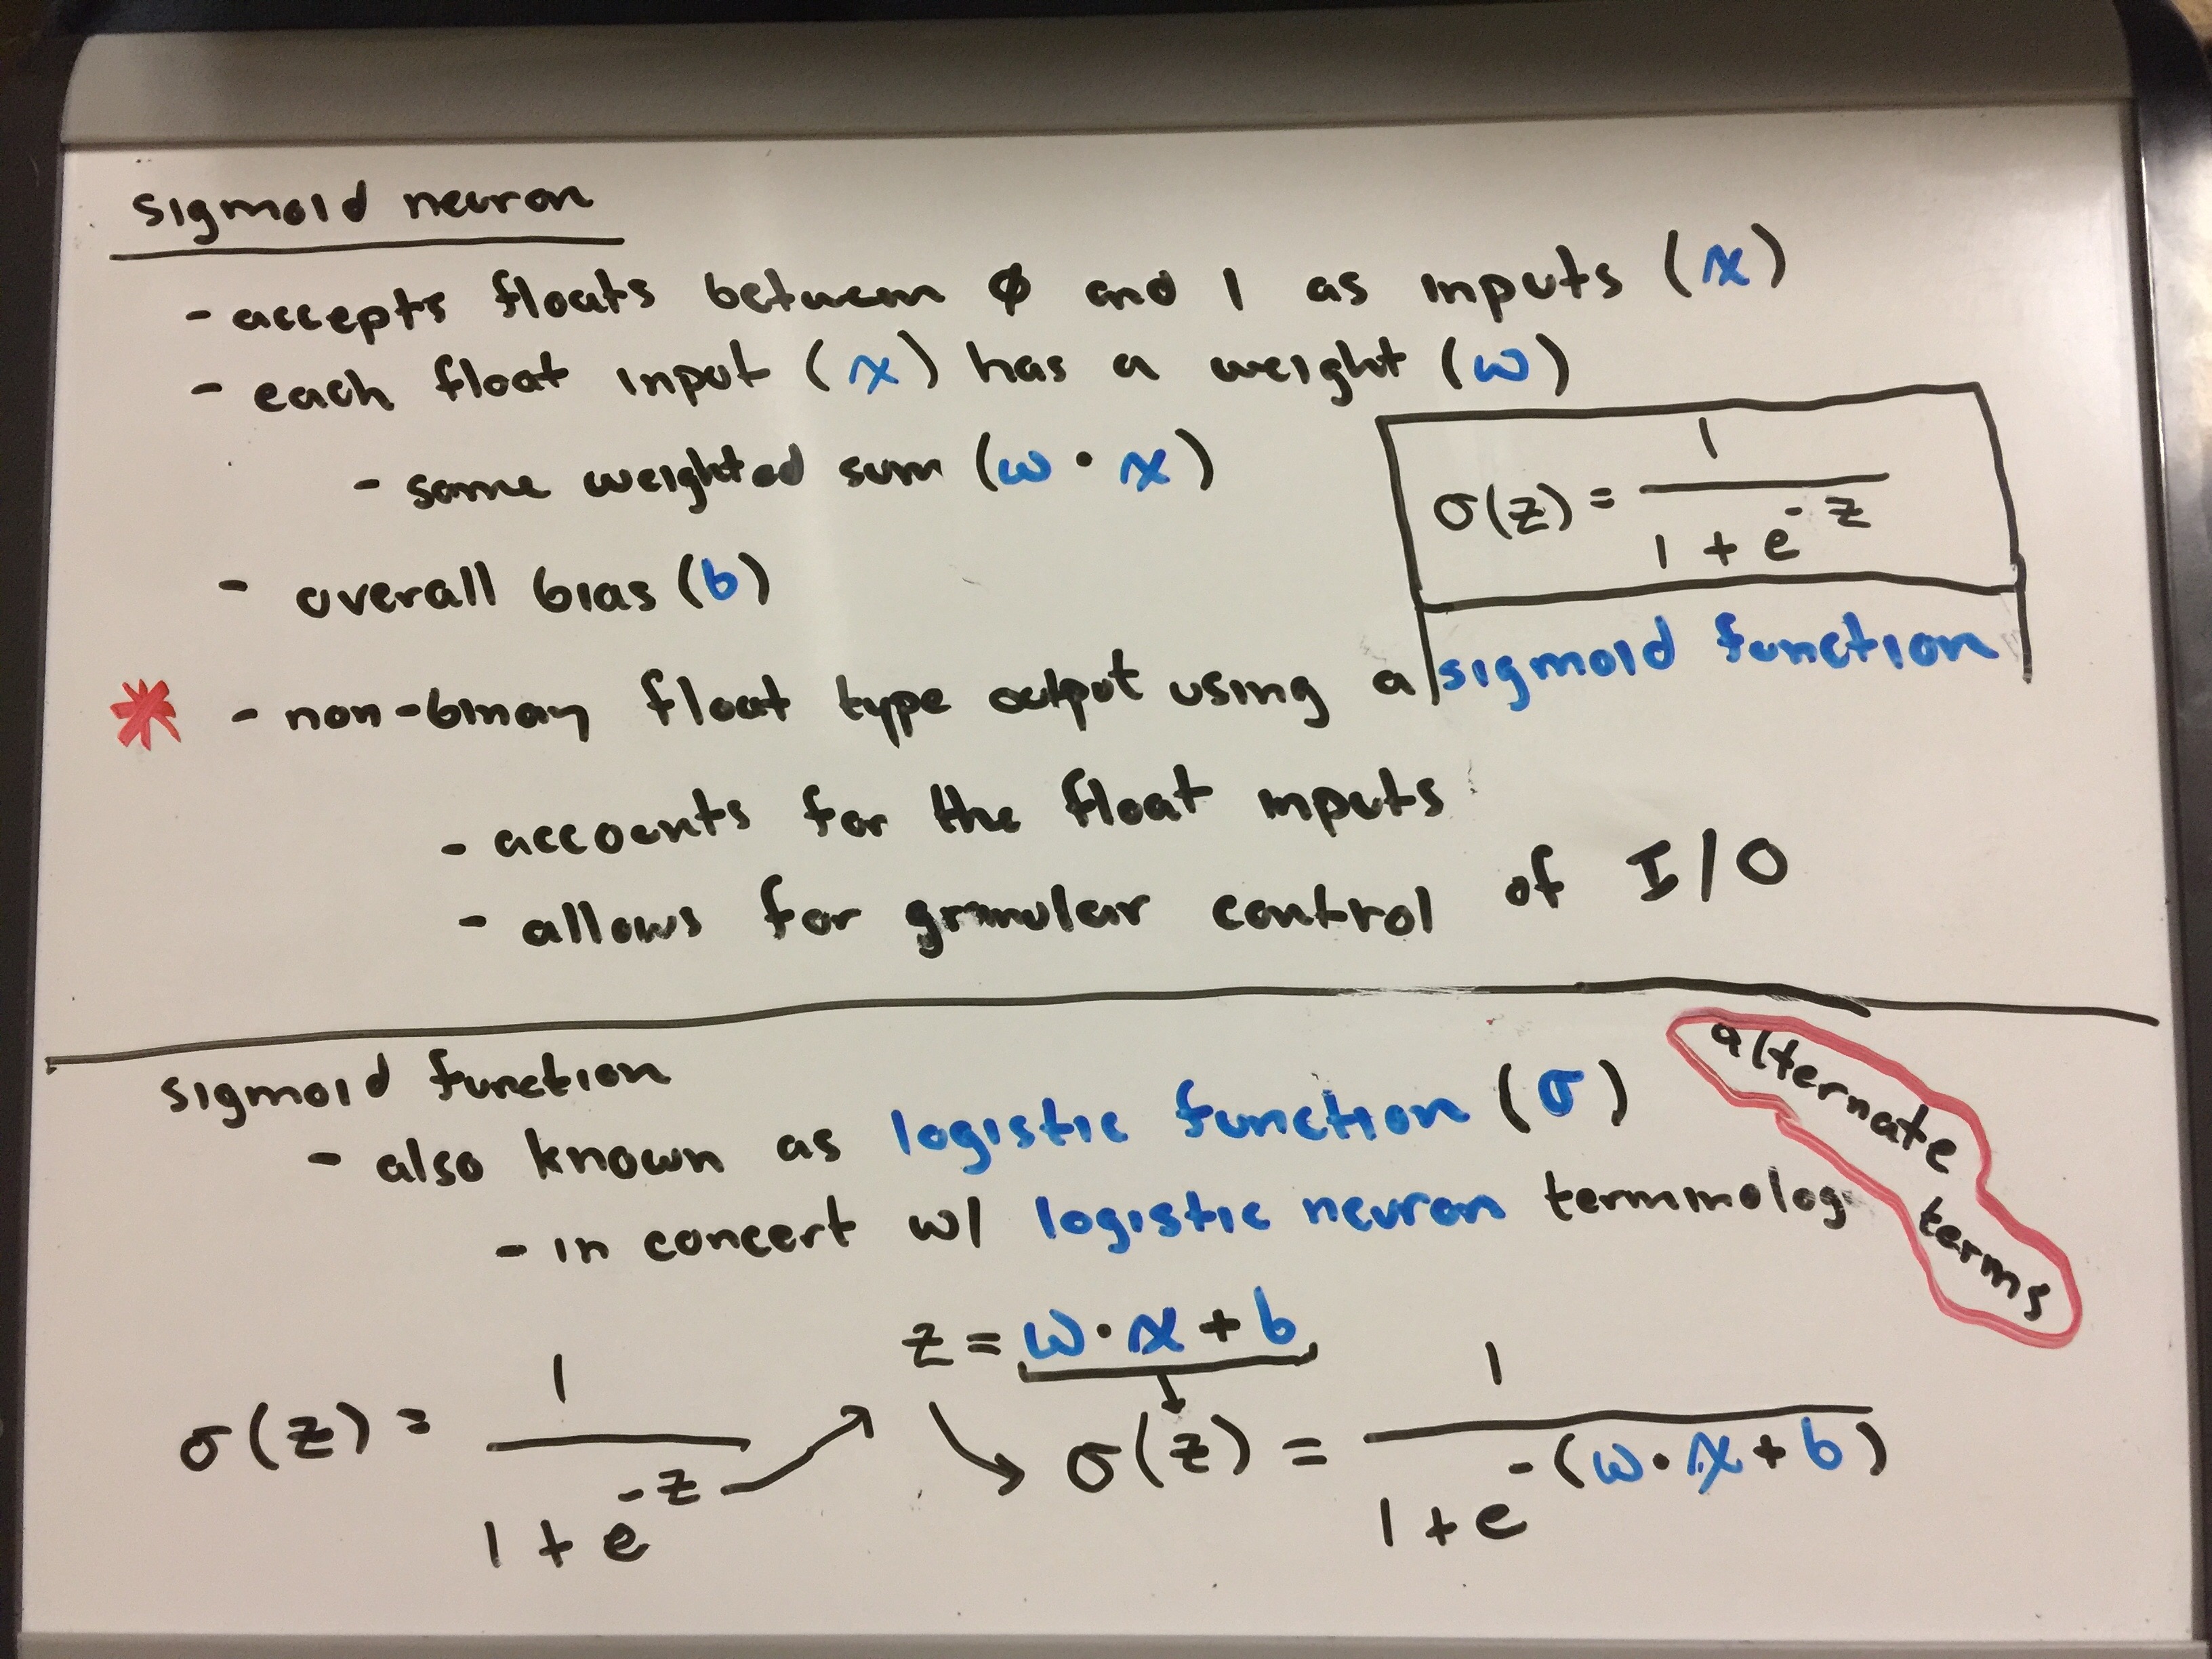 sigmoid neuron
- accepts floats between ϕ and 1 as inputs (x)
- each float input (x) has a weight (w)
- same weighted sum (w · x)
σ(z) = 1 / (1 + e^-z)
- overall bias (b)
* - non-binary float type output using a sigmoid function
- accounts for the float inputs
- allows for granular control of I/O
sigmoid function
- also known as logistic function (σ)
- in concert w/ logistic neuron terminolog
alternate terms
z = w · x + b
σ(z) = 1 / (1 + e^-z)
σ(z) = 1 / (1 + e^-(w · x + b))